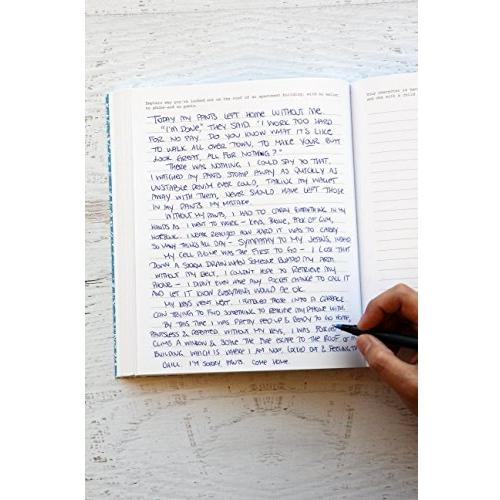 Explain why you're locked out on the roof of an apartment building, with no wallet,
no phone—and no pants.
TODAY MY PANTS LEFT HOME WITHOUT ME.
"I'M DONE," THEY SAID. "I WORK TOO HARD
FOR NO PAY. DO YOU KNOW WHAT IT'S LIKE
TO WALK ALL OVER TOWN, TO MAKE YOUR BUTT
LOOK GREAT, ALL FOR NOTHING?"
THERE WAS NOTHING I COULD SAY TO THAT.
I WATCHED MY PANTS STOMP AWAY AS QUICKLY AS
UNSTABLE DENIM EVER COULD, TAKING MY WALLET
AWAY WITH THEM. NEVER SHOULD HAVE LEFT THOSE
IN MY PANTS. MY MISTAKE.
WITHOUT MY PANTS, I HAD TO CARRY EVERYTHING IN MY
HANDS AS I WENT TO WORK - KEYS, PHONE, PACK OF GUM,
NOTEBOOK. I NEVER REALIZED HOW HARD IT WAS TO CARRY
SO MANY THINGS ALL DAY - SYMPATHY TO MY JEANS,
MY CELL PHONE WAS THE FIRST TO GO - I LOST THAT
DOWN A STORM DRAIN WHEN SOMEONE BUMPED MY ARM.
WITHOUT MY BELT, I COULDN'T HOPE TO RETRIEVE MY
PHONE - I DIDN'T EVEN HAVE ANY POCKET CHANGE TO CALL IT
AND LET IT KNOW EVERYTHING WOULD BE OK.
MY KEYS WENT NEXT. I FUMBLED THOSE INTO A GARBAGE
CAN TRYING TO FIND SOMETHING TO RETRIEVE MY PHONE WITH.
BY THIS TIME I WAS PRETTY FED UP & READY TO GO HOME,
PANTSLESS & DEFEATED. WITHOUT MY KEYS, I WAS FORCED
CLIMB A WINDOW & SCALE THE FIRE ESCAPE TO THE ROOF OF MY
BUILDING, WHICH IS WHERE I AM NOW, LOCKED OUT & FEELING THE
CHILL. I'M SORRY, PANTS. COME HOME.
Your character is
and she with a child